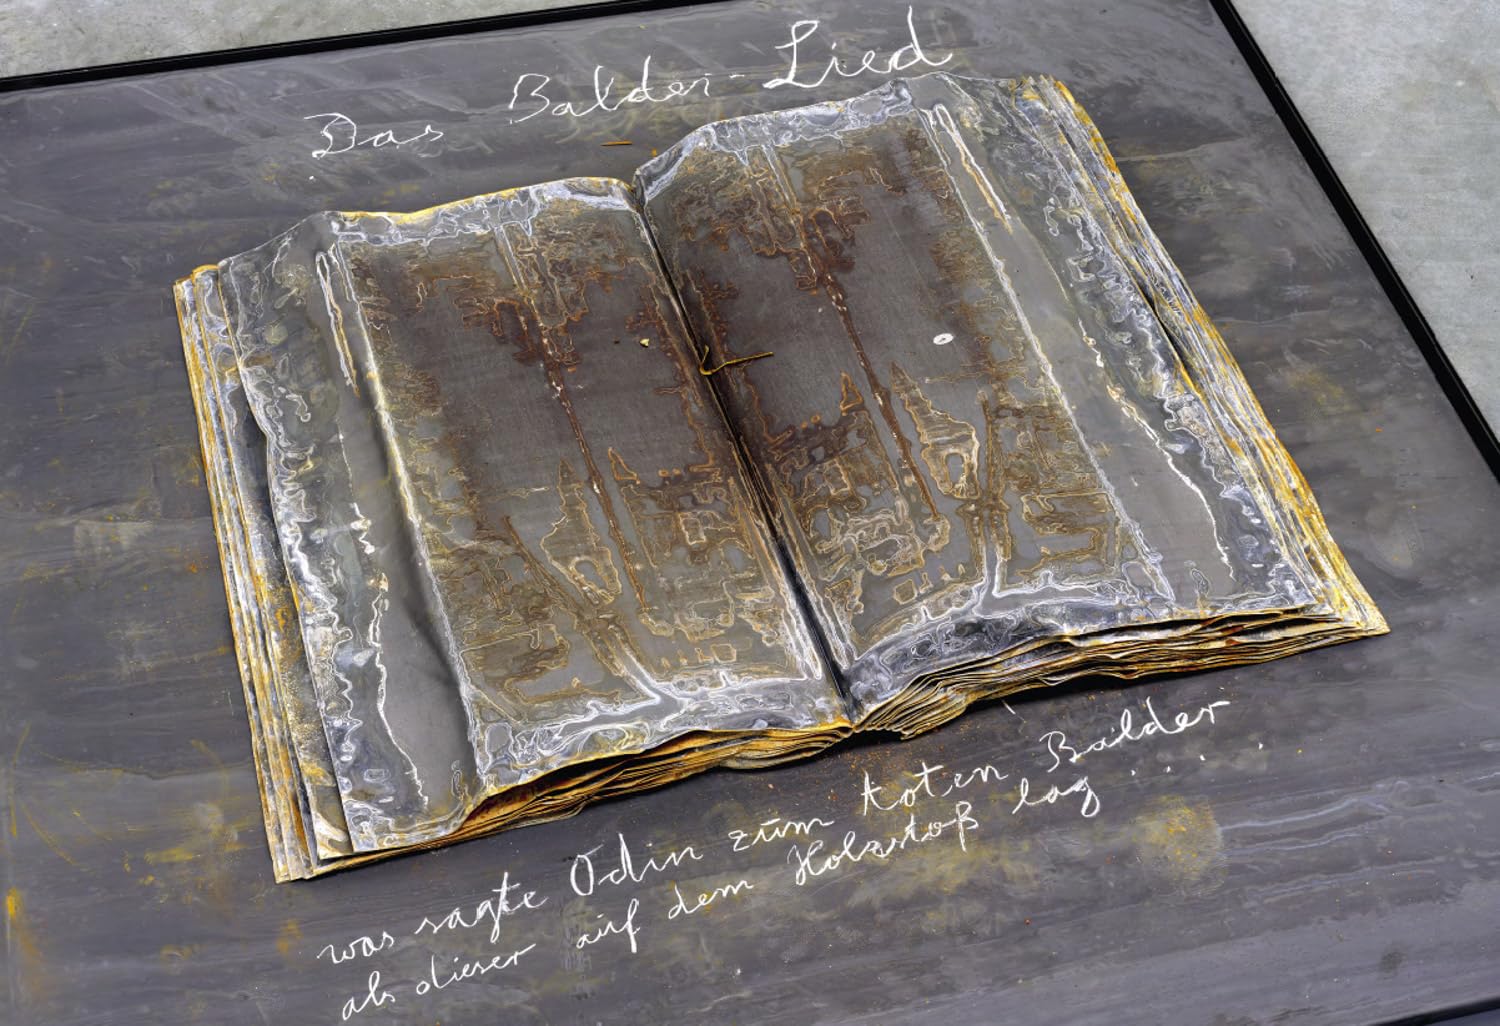 Das Balder-Lied
was sagte Odin zum toten Balder
als dieser auf dem Holzstoß lag . . . .